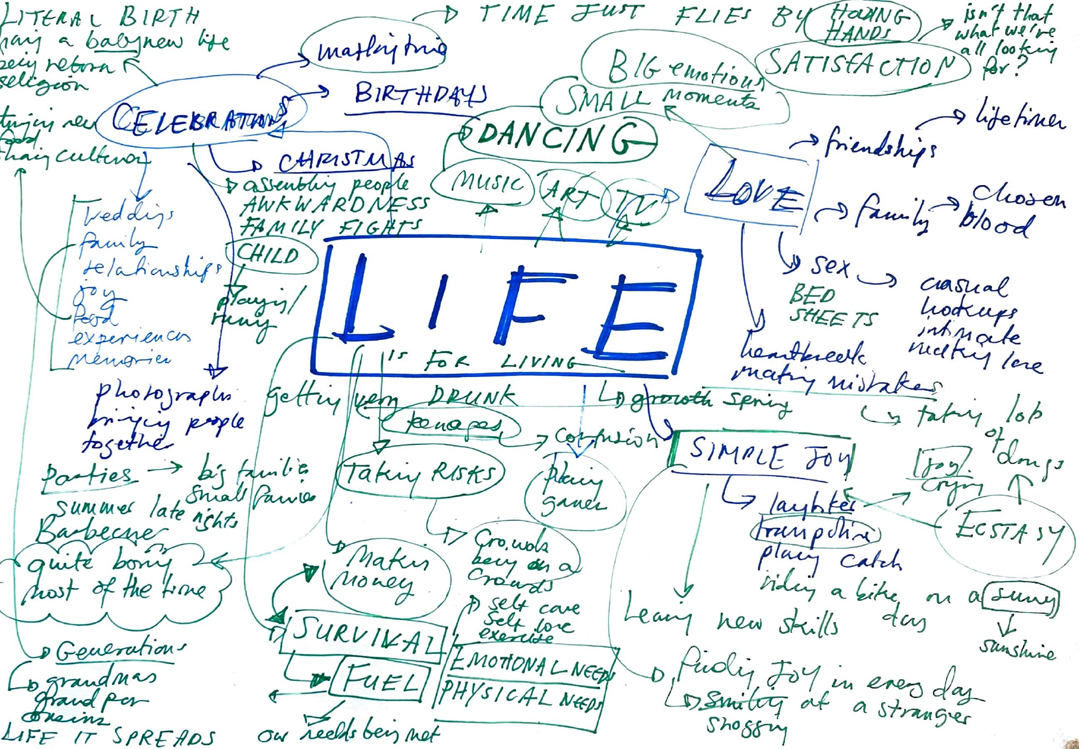 LITERAL BIRTH
a baby new life
religion
CELEBRATIONS
TIME JUST FLIES BY
HODING
HANDS
isn't that
what we're
all looking
for?
SATISFACTION
BIG emotions
SMALL moments
BIRTHDAYS
DANCING
CHRISTMAS
assembling people
AWKWARDNESS
FAMILY FIGHTS
CHILD
MUSIC
ART
TV
LOVE
friendships
lifetimer
family
chosen
blood
sex
BED
SHEETS
casual
hookups
intimate
heartbreak
making mistakes
family
relationships
joy
food
experiences
memories
photographs
people
together
LIFE
IS FOR LIVING
getting very DRUNK
teenages
growth spring
confusion
TAKING RISKS
SIMPLE JOY
laughter
trampoline
play catch
riding a bike on a sunny
day
sunshine
taking lob
of drugs
joy!
crying
ECSTASY
Parties
big families
small
summer late nights
Barbecue
quite boring
most of the time
Making
money
Crowds
being in a
Crowds
self care
self love
exercise
SURVIVAL
FUEL
EMOTIONAL NEEDS
PHYSICAL NEEDS
our needs being met
new skills
finding JOY in every day
smiling at a stranger
Generations
grandmas
LIFE IT SPREADS